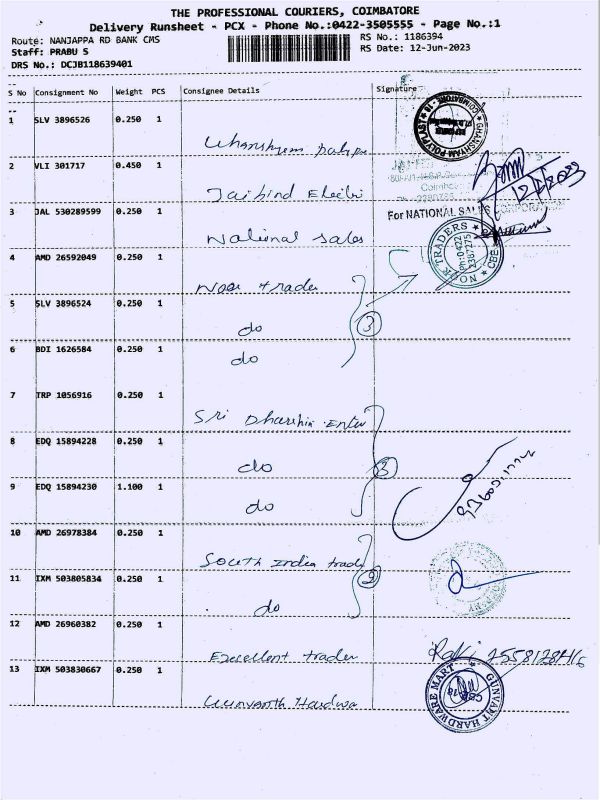 THE PROFESSIONAL COURIERS, COIMBATORE
Delivery Runsheet - PCX - Phone No.:0422-3505555 - Page No.:1
Route: NANJAPPA RD BANK CMS
RS No.: 1186394
Staff: PRABU S
RS Date: 12-Jun-2023
DRS No.: DCJB118639401
S No Consignment No Weight PCS Consignee Details Signature
1 SLV 3896526 0.250 1
GHANSHYAM POLYPLAST COIMBATORE - 18
2 VLI 301717 0.450 1
Jaihind Electri
3 JAL 530289599 0.250 1
National Sales
For NATIONAL SALES CORPORATION
4 AMD 26592049 0.250 1
Noor trader
NOOR TRADERS CBE
Ph:0422
2387275
5 SLV 3896524 0.250 1
do
3
6 BDI 1626584 0.250 1
do
7 TRP 1056916 0.250 1
Sri Enter
8 EDQ 15894228 0.250 1
do
3
9 EDQ 15894230 1.100 1
do
10 AMD 26978384 0.250 1
South India trade
11 IXM 503805834 0.250 1
do
2
12 AMD 26960382 0.250 1
Excellent trader
Ravi
13 IXM 503830667 0.250 1
Gunvanth Hardwa
GUNVANT HARDWARE MART
CBE-18